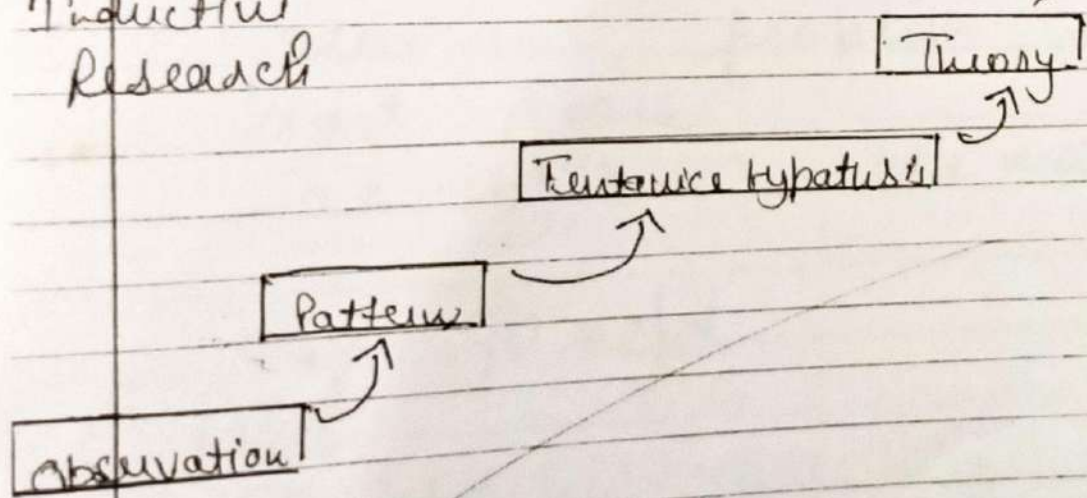 Inductive
Research
Theory
Tentative Hypothesis
Pattern
Observation